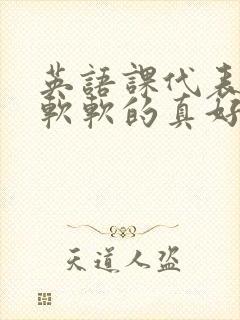 英語課代表
軟軟的真好
天道人盜